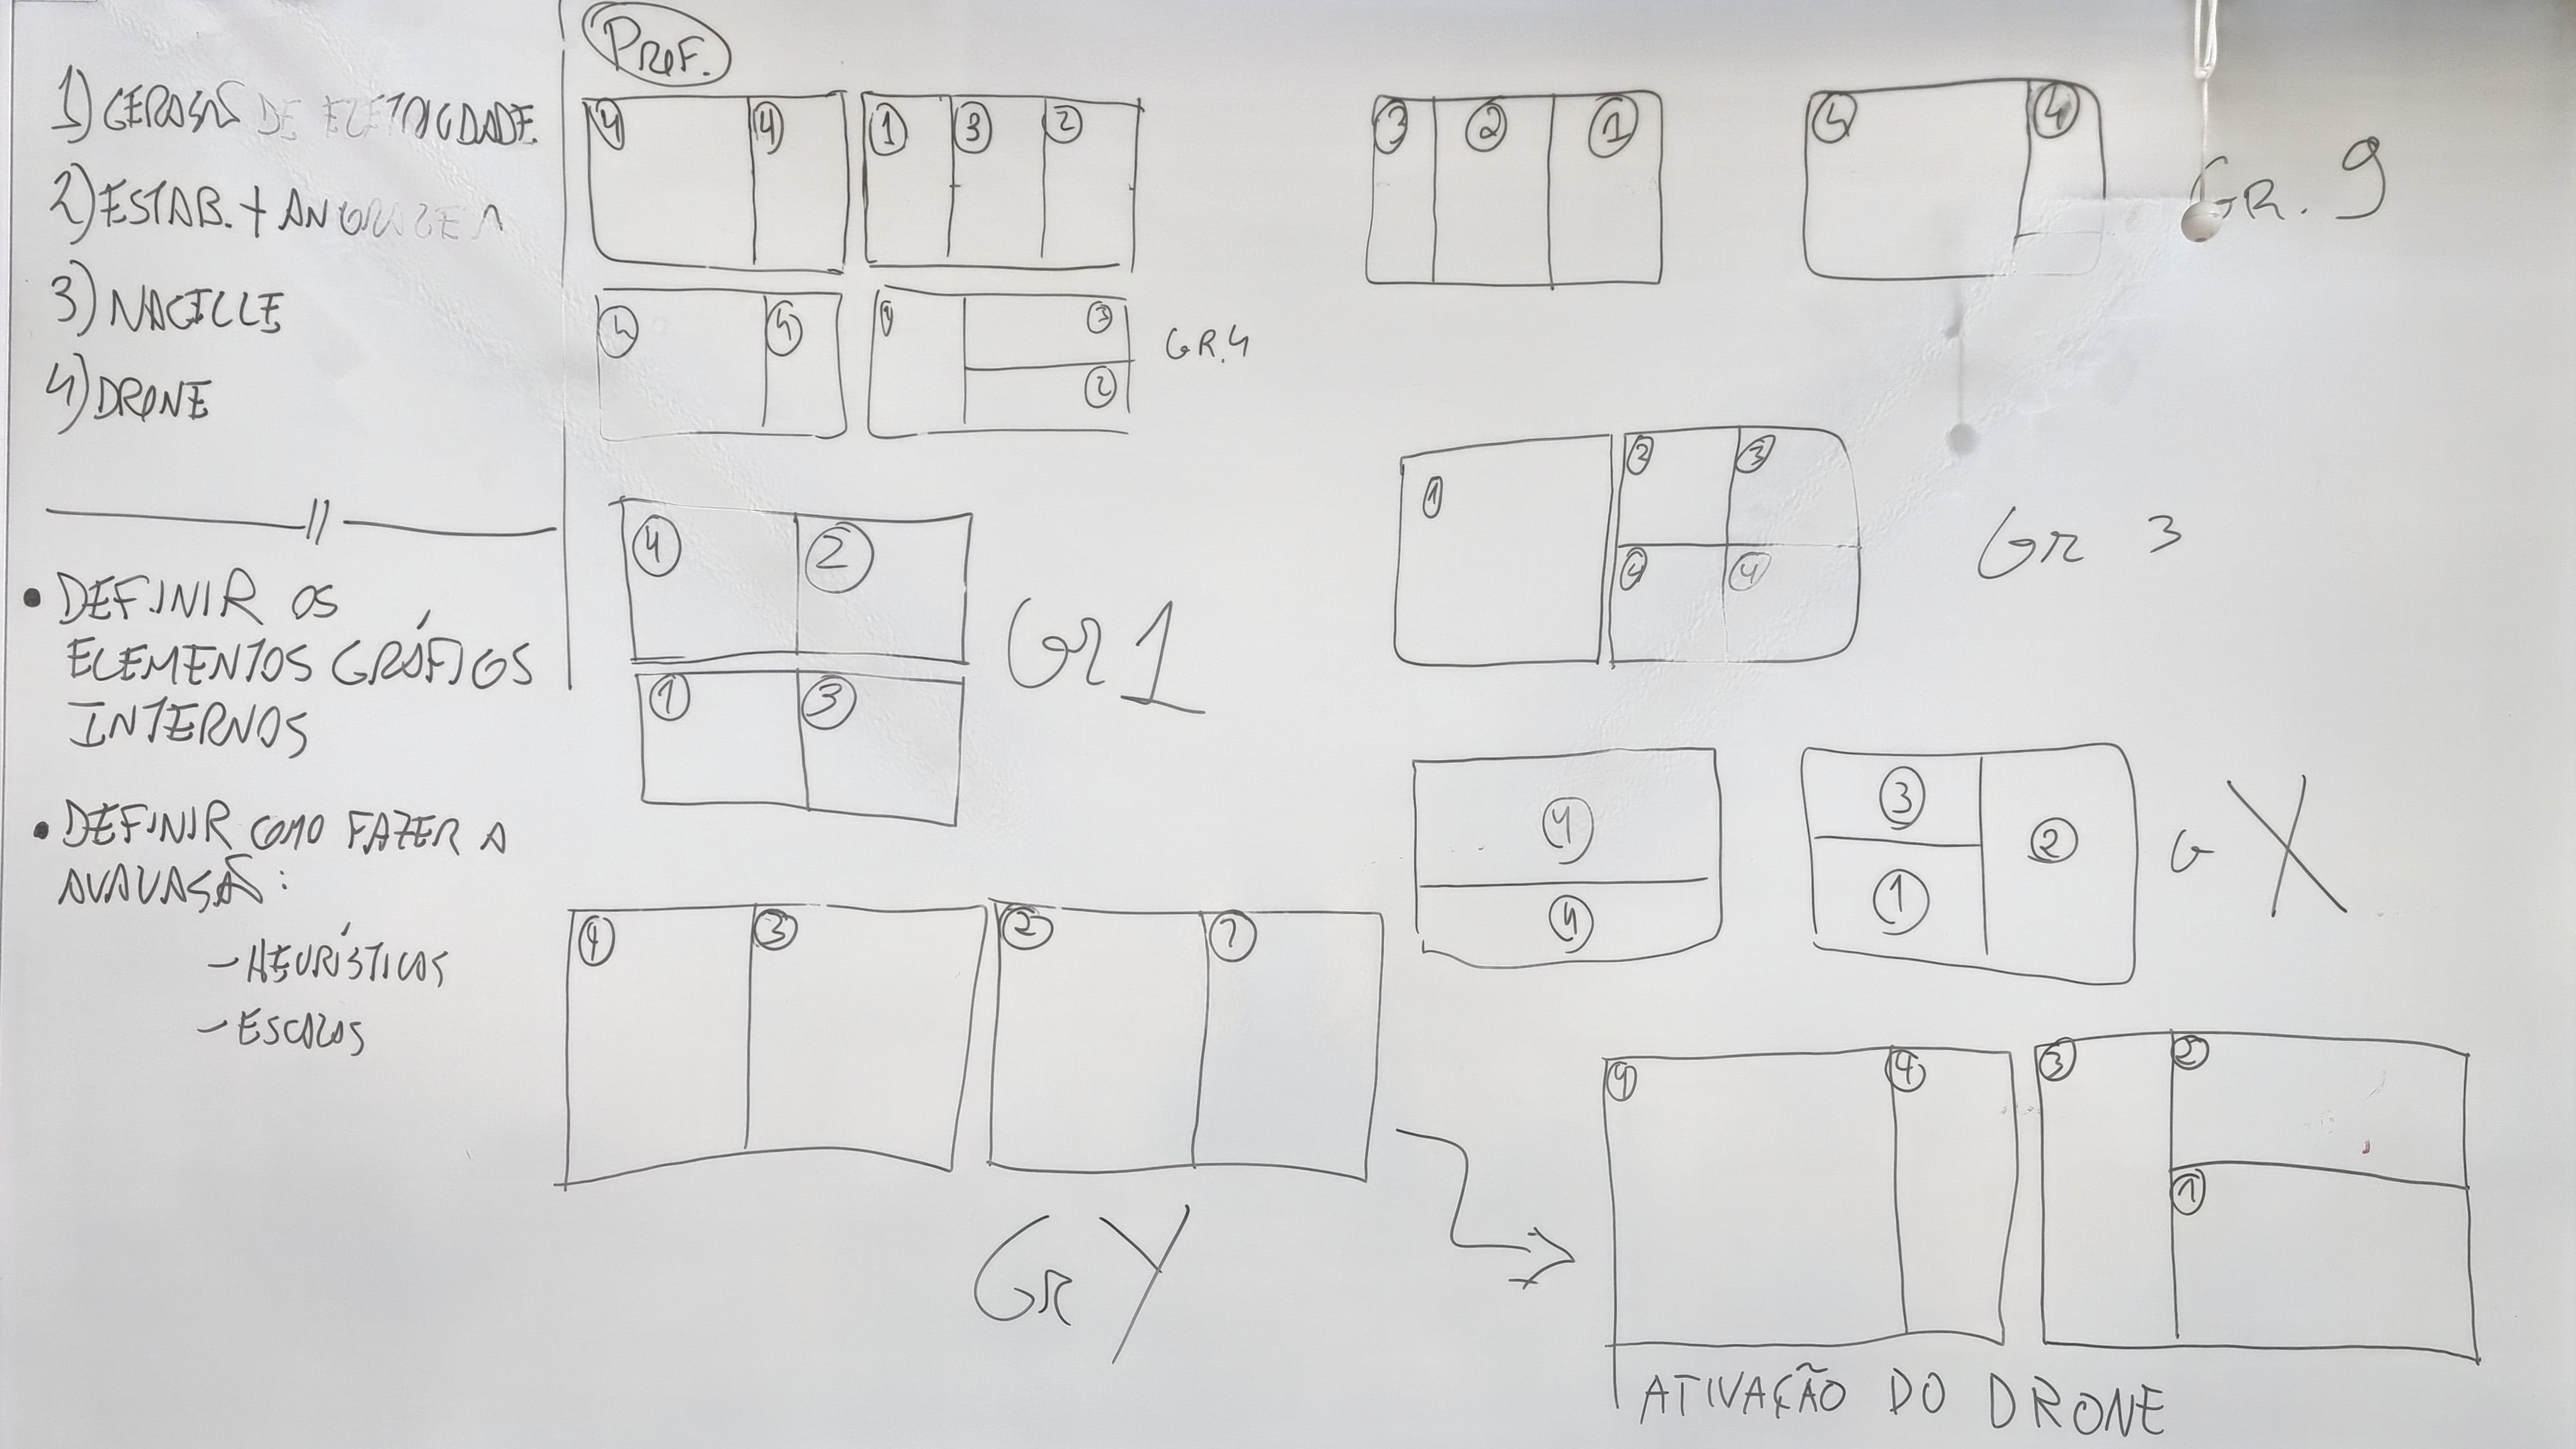 1) GERAÇÃO DE ELETRICIDADE
2) ESTAB. + ANCORAGEM
3) NACELLE
4) DRONE
• DEFINIR OS
ELEMENTOS GRÁFICOS
INTERNOS
• DEFINIR COMO FAZER A
AVALIAÇÃO:
- HEURÍSTICAS
- ESCALAS
PROF.
4 4 1 3 2
4 4 1 3 2
GR.4
4 2
1 3
Gr 1
4 3 2 1
Gr Y
3 2 1 4 4
GR. 9
1 2 3
4 4
Gr 3
4 3 2
4 1
G X
4 4 3 2
1
ATIVAÇÃO DO DRONE